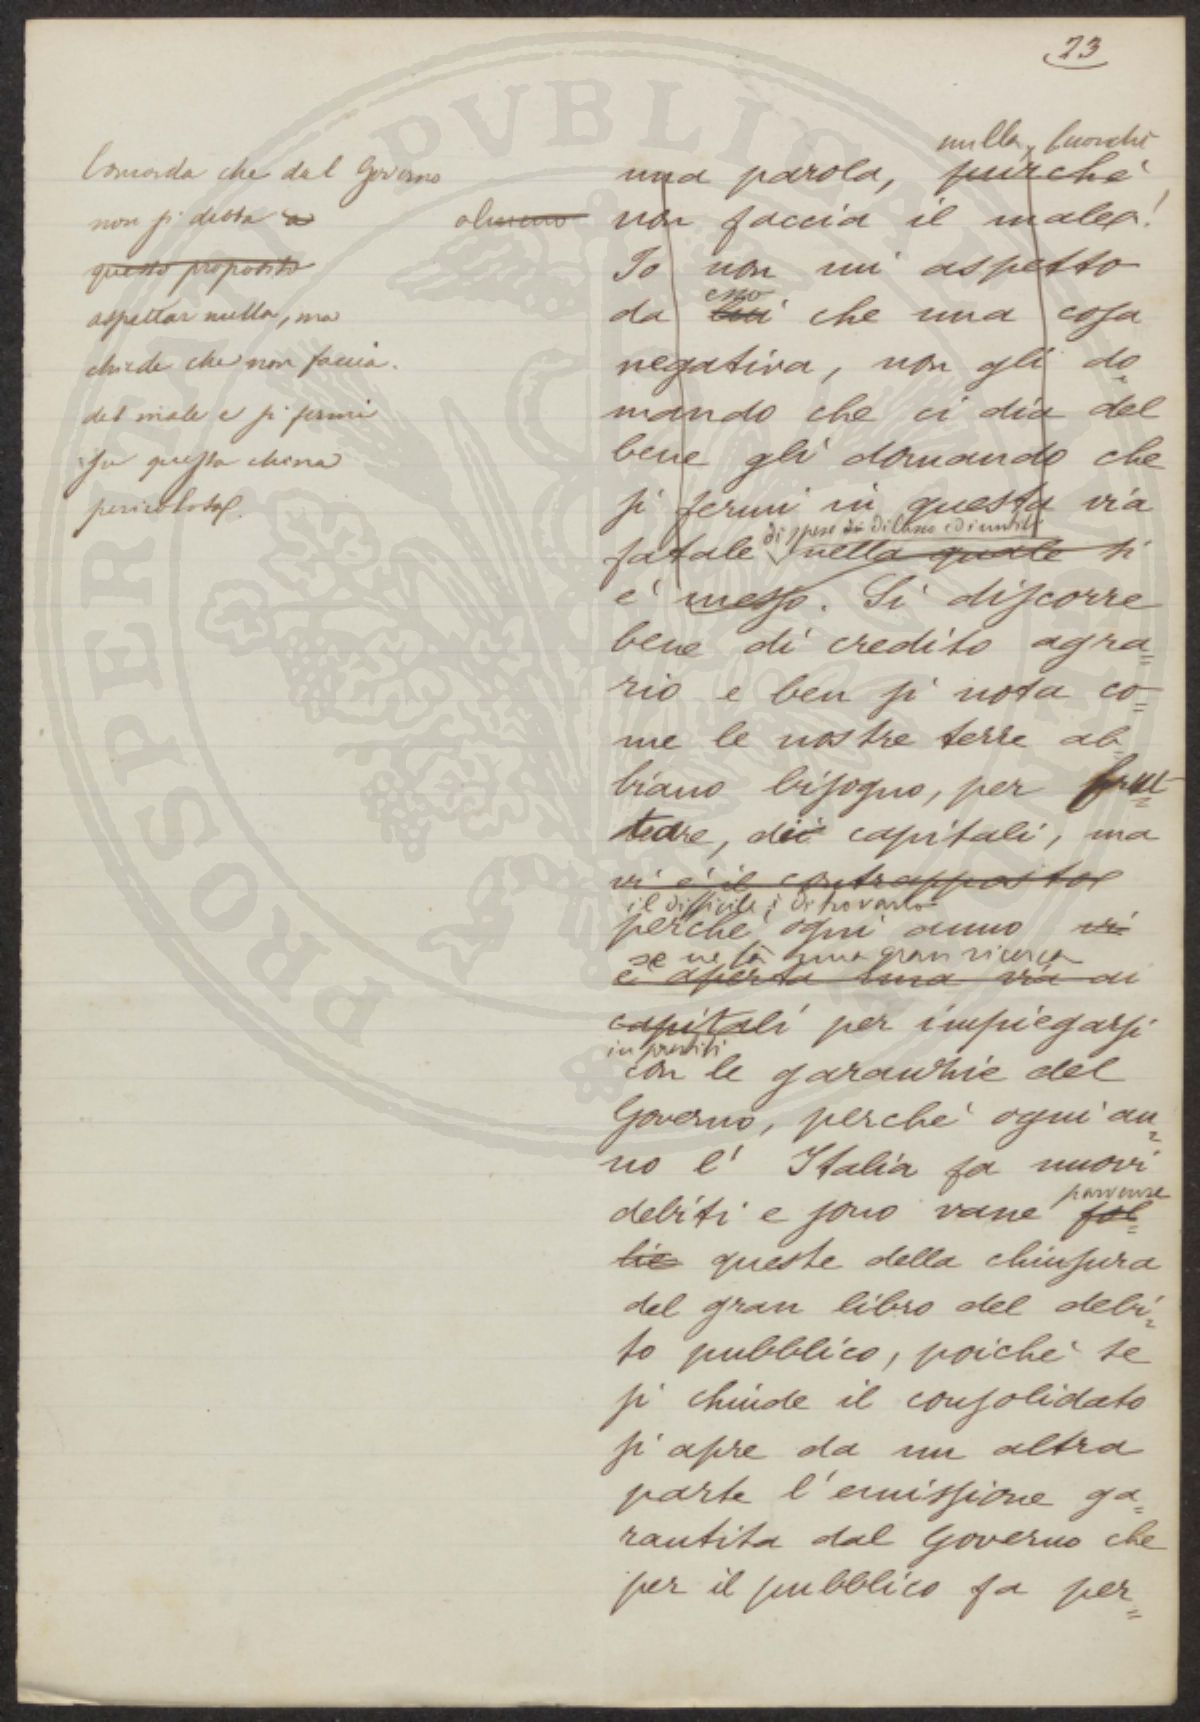 23
nulla, fuorché
una parola, purché
non faccia il male!
Io non mi aspetto
esso
da lui che una cosa
negativa, non gli do
mando che ci dia del
bene gli domando che
si fermi in questa via
di spese di lusso ed inutili
fatale nella quale si
è messo. Si discorre
bene di credito agra=
rio e ben si nota co=
me le nostre terre ab
biano bisogno, per frut=
tare, dei capitali, ma
vi è il contrapposto
il difficile è di trovarlo
perché ogni anno vi
se ne fa una gran ricerca
è aperta una via ai
capitali per impiegarsi
in prestiti
con le garanzie del
Governo, perché ogni an=
no l' Italia fa nuovi
debiti e sono vane parvenze
fol=
lie queste della chiusura
del gran libro del debi=
to pubblico, poiché se
si chiude il consolidato
si apre da un altra
parte l'emissione ga=
rantita dal Governo che
per il pubblico fa per=
Comorda che dal Governo
non si debba a
almeno
questo proposito
aspettar nulla, ma
chiede che non faccia
del male e si fermi
su questa china
pericolosa.
PROSPERITAS PVBLICA